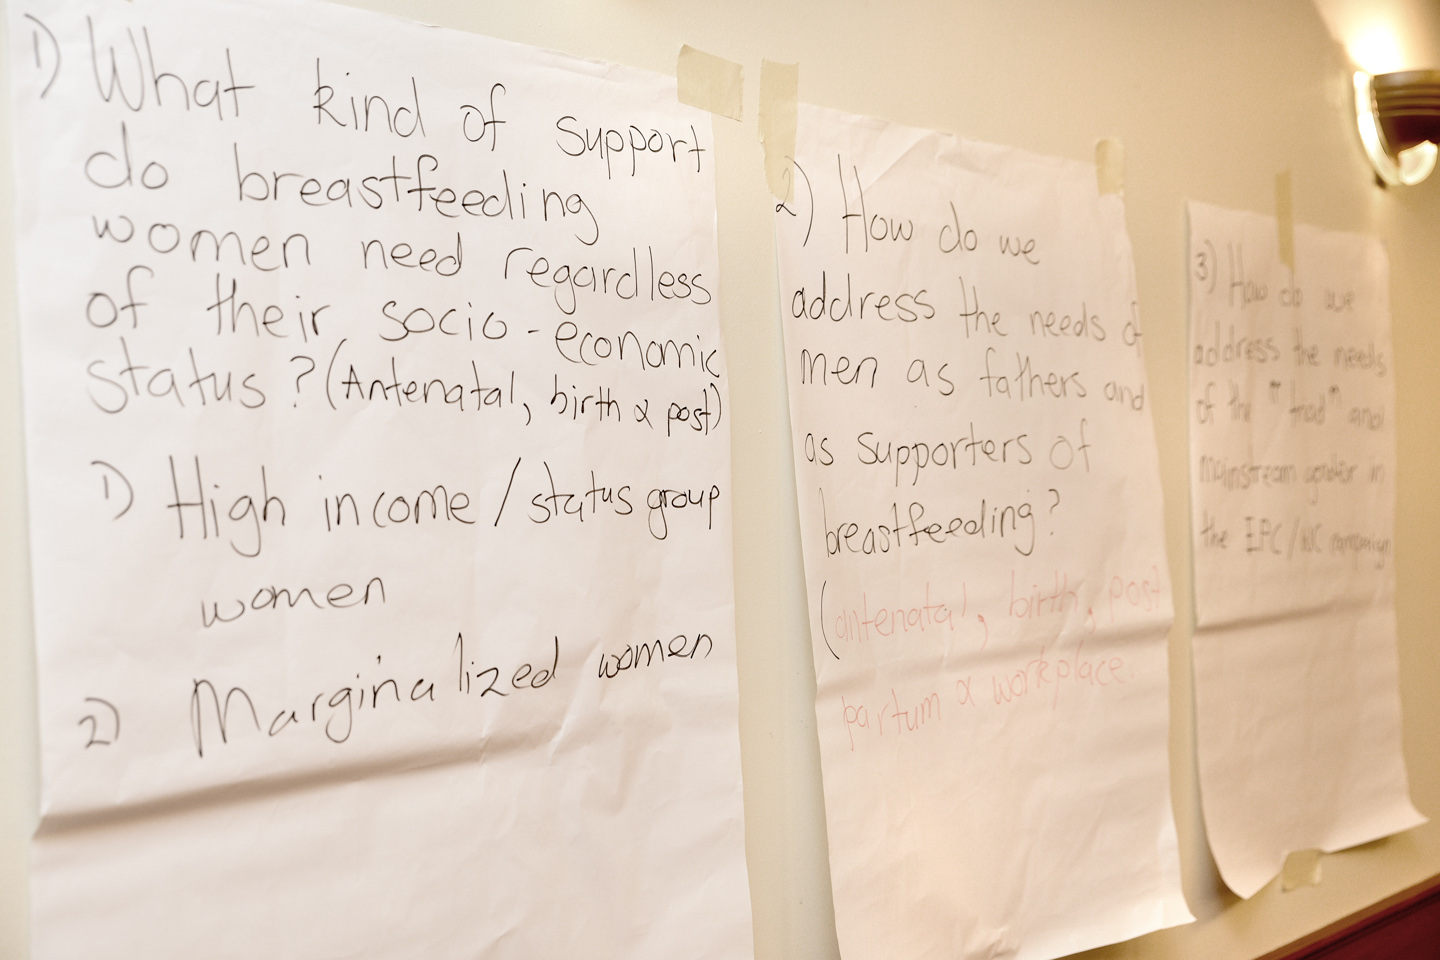 1) What kind of support
do breastfeeding
women need regardless
of their socio-economic
status? (Antenatal, birth & post)
1) High income / status group
women
2) Marginalized women
2) How do we
address the needs of
men as fathers and
as supporters of
breastfeeding?
(antenatal, birth, post
partum & workplace.
3) How do we
address the needs
of the "trad" and
mainstream gender in
the EPC / campaign